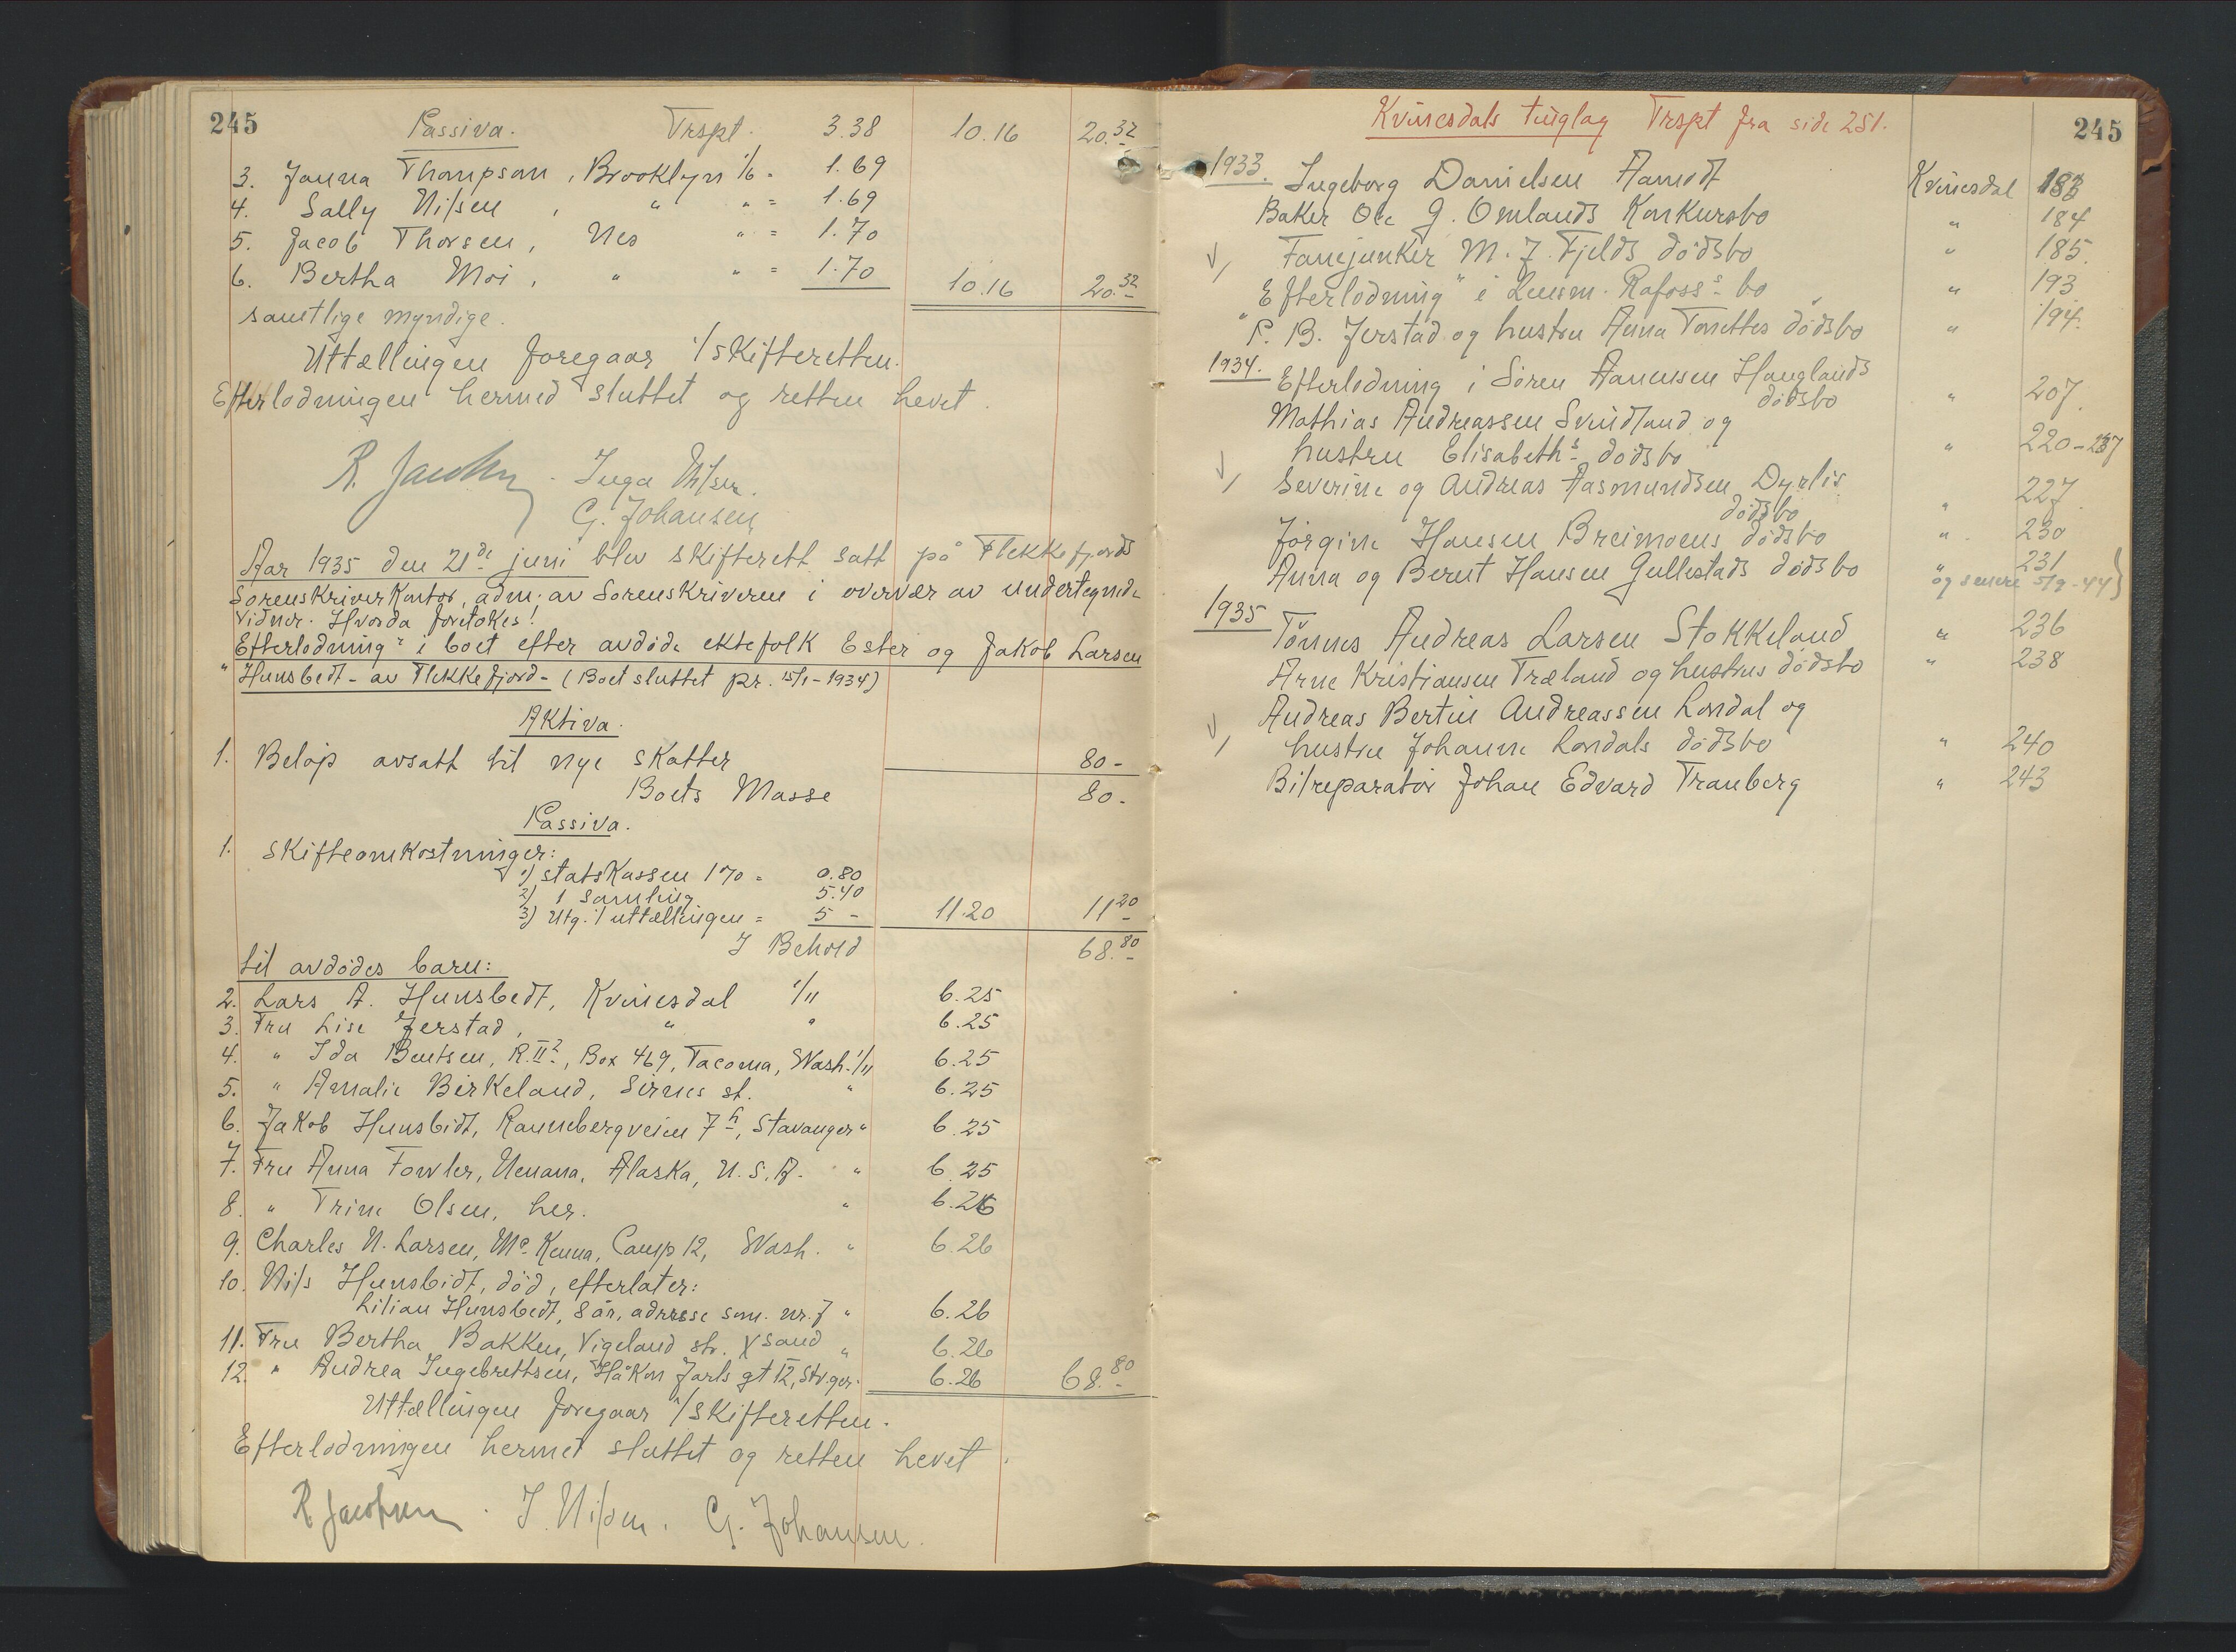 245
Passiva. Trspt. 3.38 10.16 20.32
3. Janna Thompson, Brooklyn 1/6 = 1.69
4. Sally Nilsen, " " = 1.69
5. Jacob Thorsen, Nes " = 1.70
6. Bertha Moi, " " = 1.70 10.16 20.32
samtlige myndige.
Uttællingen foregaar i/skifteretten.
Efterlodningen hermed sluttet og retten hevet.
R. Jacobsen. Inga Nilsen.
G. Johansen
Aar 1935 den 21de juni blev skifterett satt på Flekkefjords
Sorenskriverkontor, adm. av Sorenskriveren i overvær av undertegnede
Vidner. Hvorda foretokes:
"Efterlodning" i boet efter avdøde ektefolk Ester og Jakob Larsen
Hunsbedt - av Flekkefjord - (Boet sluttet pr. 15/1-1934)
Aktiva.
1. Beløp avsatt til nye skatter 80 -
Boets Masse 80 -
Passiva.
1. Skifteomkostninger:
1) statskassen 1% = 0.80
2) 1 samling 5.40
3) Utg. v/ uttællingen = 5 - 11.20 11.20
I Behold 68.80
til avdødes barn:
2. Lars A. Hunsbedt, Kvinesdal 1/11 6.25
3. Fru Lise Jerstad, " " 6.25
4. " Ida Bentsen, R.II2, Box 469, Tacoma, Wash. 1/11 6.25
5. " Amalie Birkeland, Sirnes st. " 6.25
6. Jakob Hunsbedt, Rannebergveien 7h, Stavanger " 6.25
7. Fru Anna Fowler, Nenana, Alaska, U.S.A. " 6.25
8. " Trine Olsen, her. " 6.26
9. Charles N. Larsen, Mc. Kenna, Camp 12, Wash. " 6.26
10. Nils Hunsbedt, død, efterlater:
Lilian Hunsbedt, 8 år, adresse som nr. 7 " 6.26
11. Fru Bertha Bakken, Vigeland str. Xsand " 6.26
12. " Andrea Ingebrettsen, Håkon Jarls gt 12, Stv.ger. 6.26 68.80
Uttællingen foregaar v/skifteretten.
Efterlodningen hermet sluttet og retten hevet.
R Jacobsen. I. Nilsen. G. Johansen.
Kvinesdals tinglag Trspt fra side 251.
245
1933. Ingeborg Danielsen Aamodt Kvinesdal 183
Baker Ole G. Omlands Konkursbo " 184
Fanejunker M. J. Fjelds dødsbo " 185.
"Efterlodning" i Lensm. Rafoss's bo " 193
P. B. Jerstad og hustru Anna Tonettes dødsbo " 194.
1934. Efterlodning i Søren Aanensen Hauglands
dødsbo " 207.
Mathias Andreassen Svindland og
hustru Elisabeths dødsbo " 220-237
Severine og Andreas Aasmundsen Dyrlis
dødsbo " 227
Jørgine Hansen Breimoens dødsbo " 230
Anna og Bernt Hansen Gullestads dødsbo " 231
og senere 5/9-44}
1935 Tønnes Andreas Larsen Stokkeland " 236
Arne Kristiansen Træland og hustrus dødsbo " 238
Andreas Bertin Andreassen Londal og
hustru Johanne Londals dødsbo " 240
Bilreparatør Johan Edvard Tranberg " 243